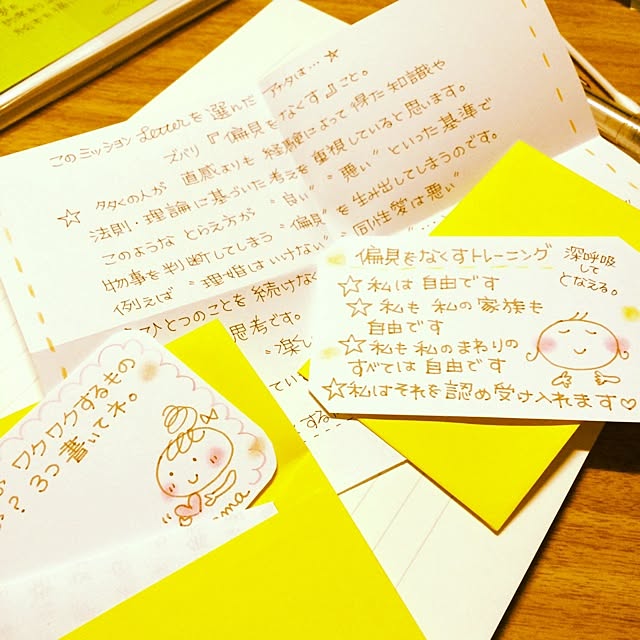 このミッションLetterを選んだアナタは…☆
ズバリ『偏見をなくす』こと。
☆ 多くの人が 直感よりも 経験によって 得た知識や
法則・理論に基づいた考えを重視していると思います。
このような とらえ方が "良い" "悪い" といった基準で
物事を判断してしまう "偏見" を生み出してしまうのです。
例えば "離婚はいけない" "同性愛は悪い"
ひとつのことを続けな
思考です。
"楽し
てい
する
偏見をなくすトレーニング
深呼吸
して
となえる。
☆私は 自由です
☆私も 私の家族も
自由です
☆私も私のまわりの
すべては 自由です
☆私はそれを認め受け入れます♡
ワクワクするもの
? 3つ 書いてネ。
ma